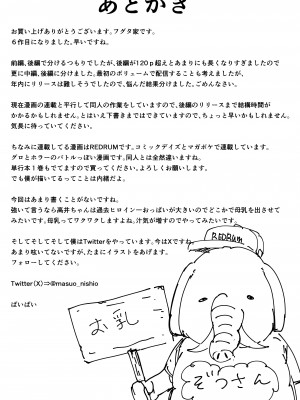 あとがき
お買い上げありがとうございます。フグタ家です。
６作目になりました。早いですね。
前編、後編で分けるつもりでしたが、後編が120ｐ超えとあまりにも長くなりすぎましたので
更に中編、後編に分けました。最初のボリュームで配信することも考えましたが、
年内にリリースは難しそうでしたので、悩んだ結果分けました、ごめんなさい。
現在漫画の連載と平行して同人の作業をしていますので、後編のリリースまで結構時間が
かかるかもしれません。とはいえ下書きまではできていますので、ちょっと早いかもしれません。
気長に待っていてください。
ちなみに連載してる漫画はREDRUMです。コミックデイズとマガポケで連載しています。
グロとホラーのバトルっぽい漫画です。同人とは全然違いますね。
単行本１巻もでてますので買ってください。よろしくお願いします。
でも僕が描いてるってことは内緒だよ。
今回はあまり書くことがないですね。
強いて言うなら高井ちゃんは過去ヒロイン一おっぱいが大きいのでどこかで母乳を出させて
みたいです。母乳ってワクワクしますよね。汁気が増すのでやってみたいです。
そしてそしてそして僕はTwitterをやっています。今はXですね。
あまり呟いてないですが、たまにイラストをあげます。
フォローしてください。
Twitter（X）⇒@masuo_nishio
ばいばい
REDRUM
お乳
ぞうさん